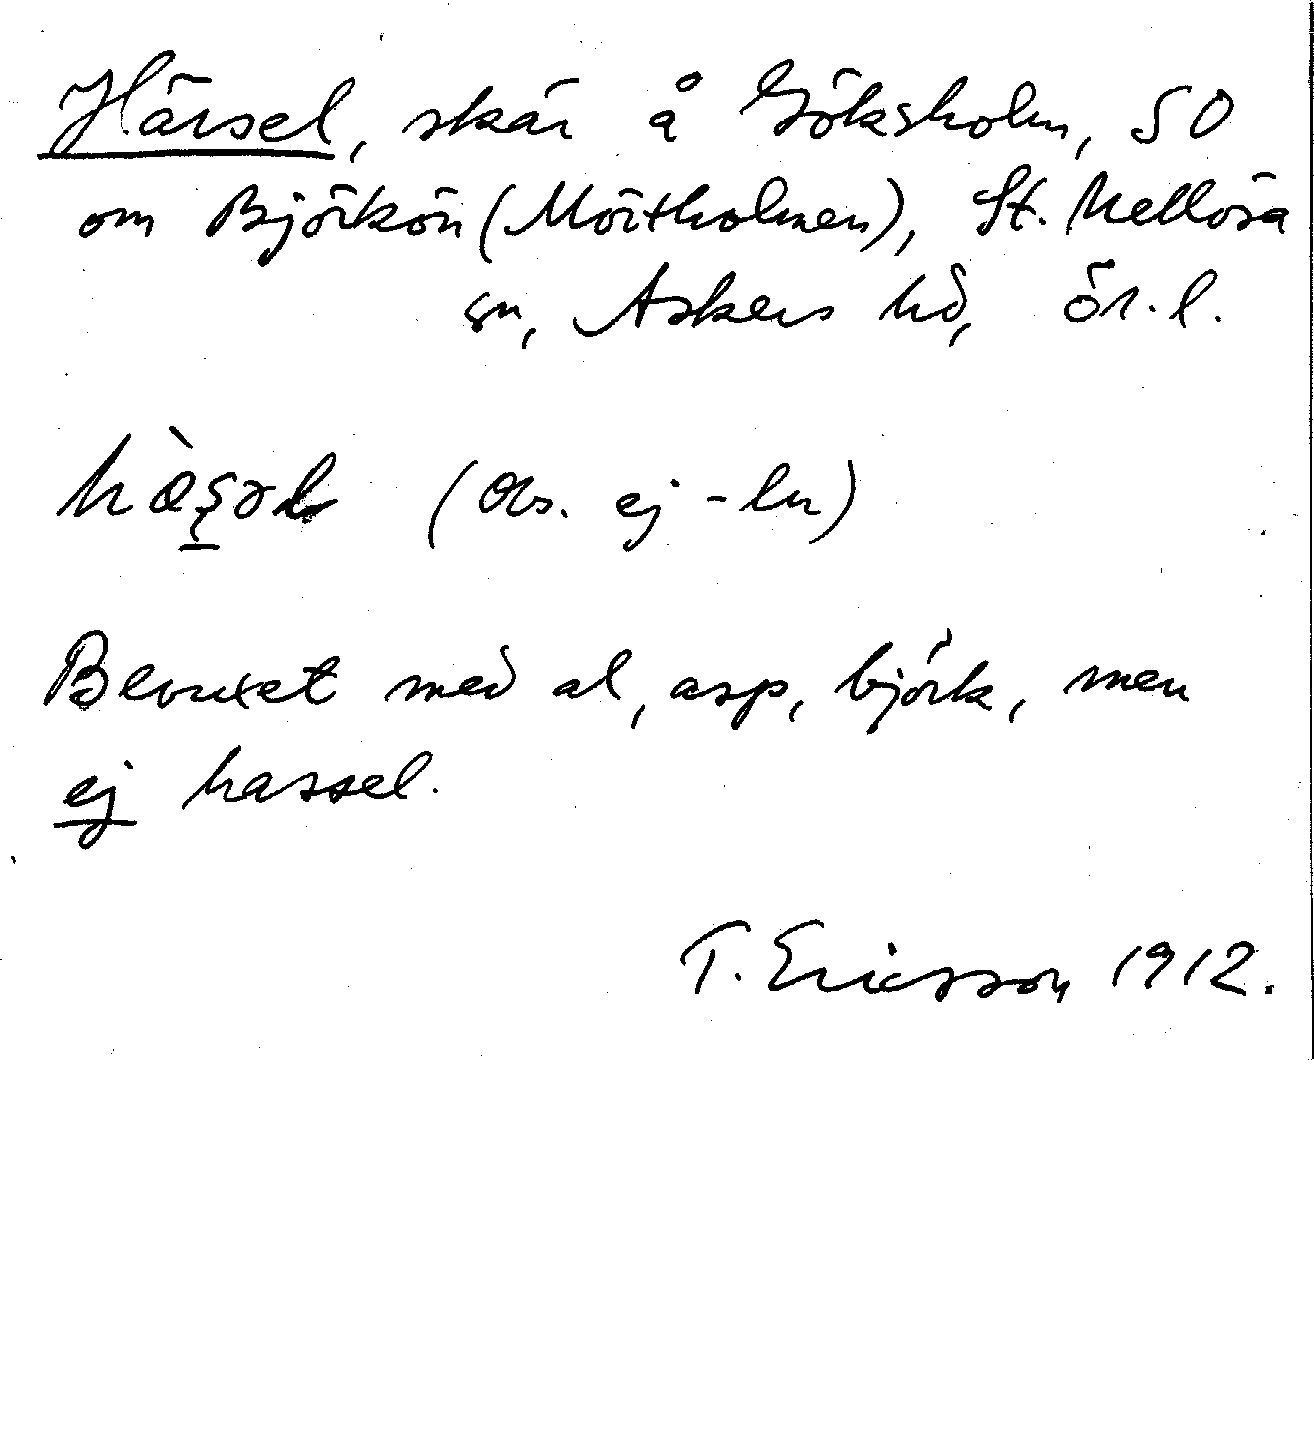 Härsel, skär å Göksholm, SO
om Björkön (Mörtholmen), St. Mellösa
sn, Askers hd, Ör. l.
hæ̀ʂəl (Obs. ej -ln)
Bevuxet med al, asp, björk, men
ej hassel.
T. Ericsson 1912.